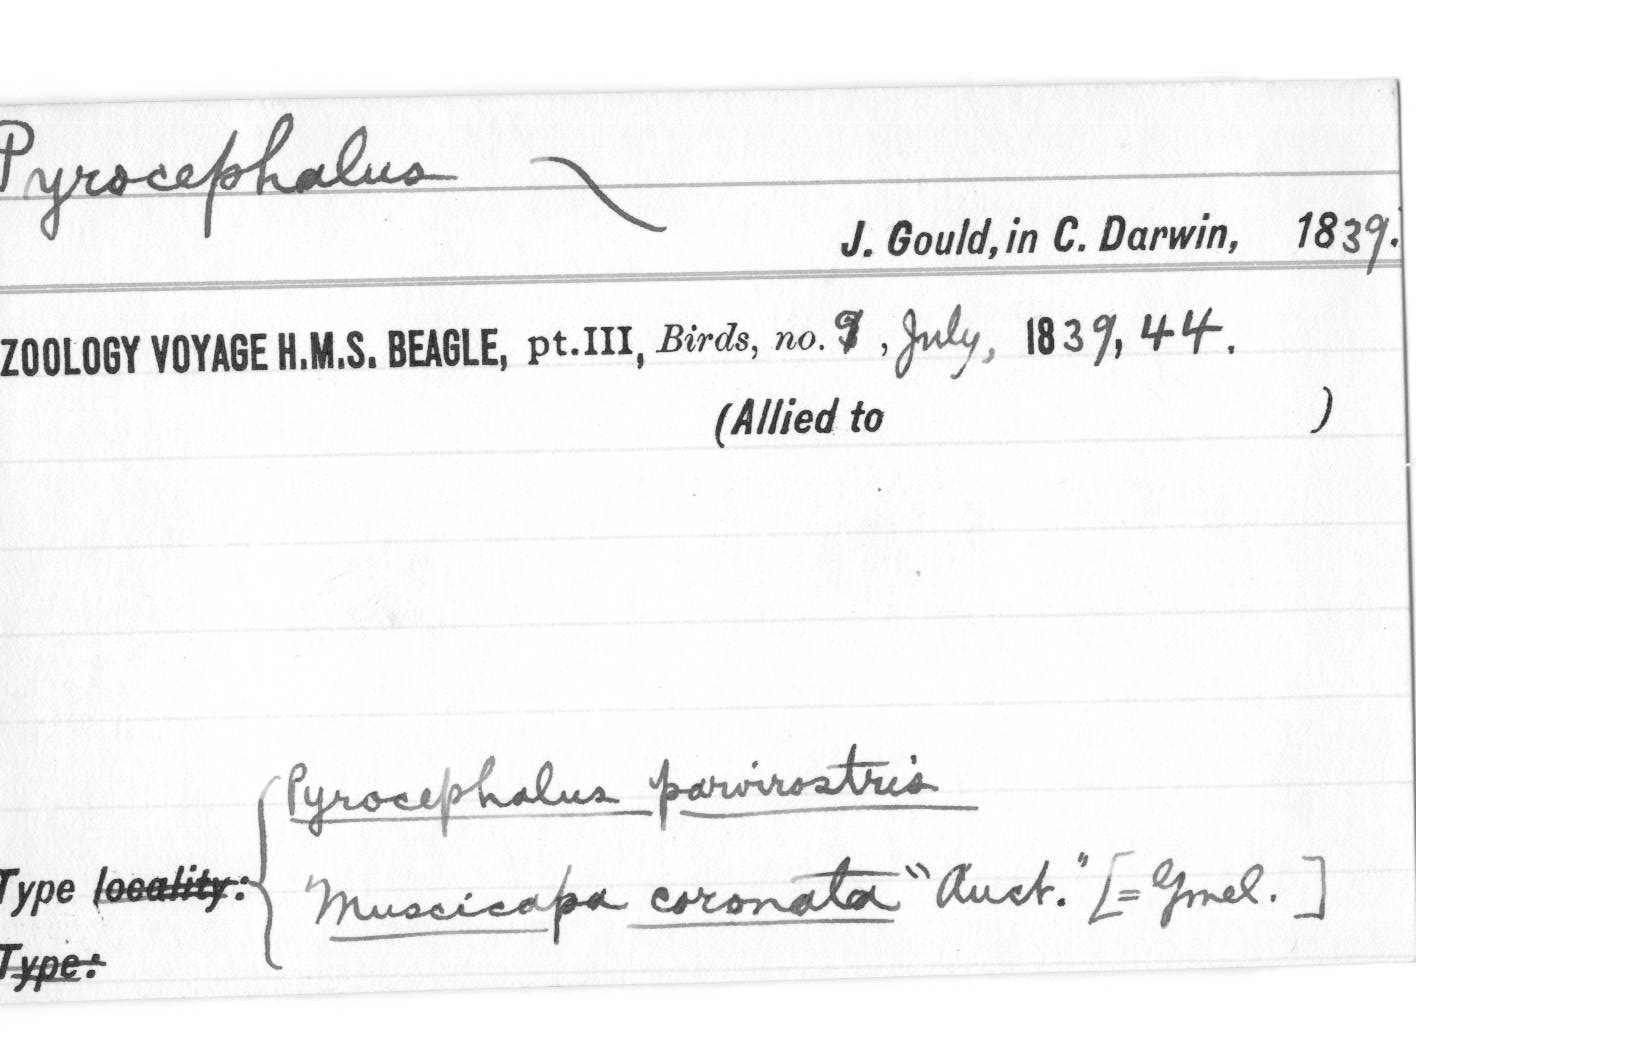 Pyrocephalus
J. Gould, in C. Darwin, 1839.
ZOOLOGY VOYAGE H.M.S. BEAGLE, pt.III, Birds, no. 9, July, 1839, 44.
(Allied to )
Pyrocephalus parvirostris
Type locality: Muscicapa coronata "Auct." [= Gmel. ]
Type: